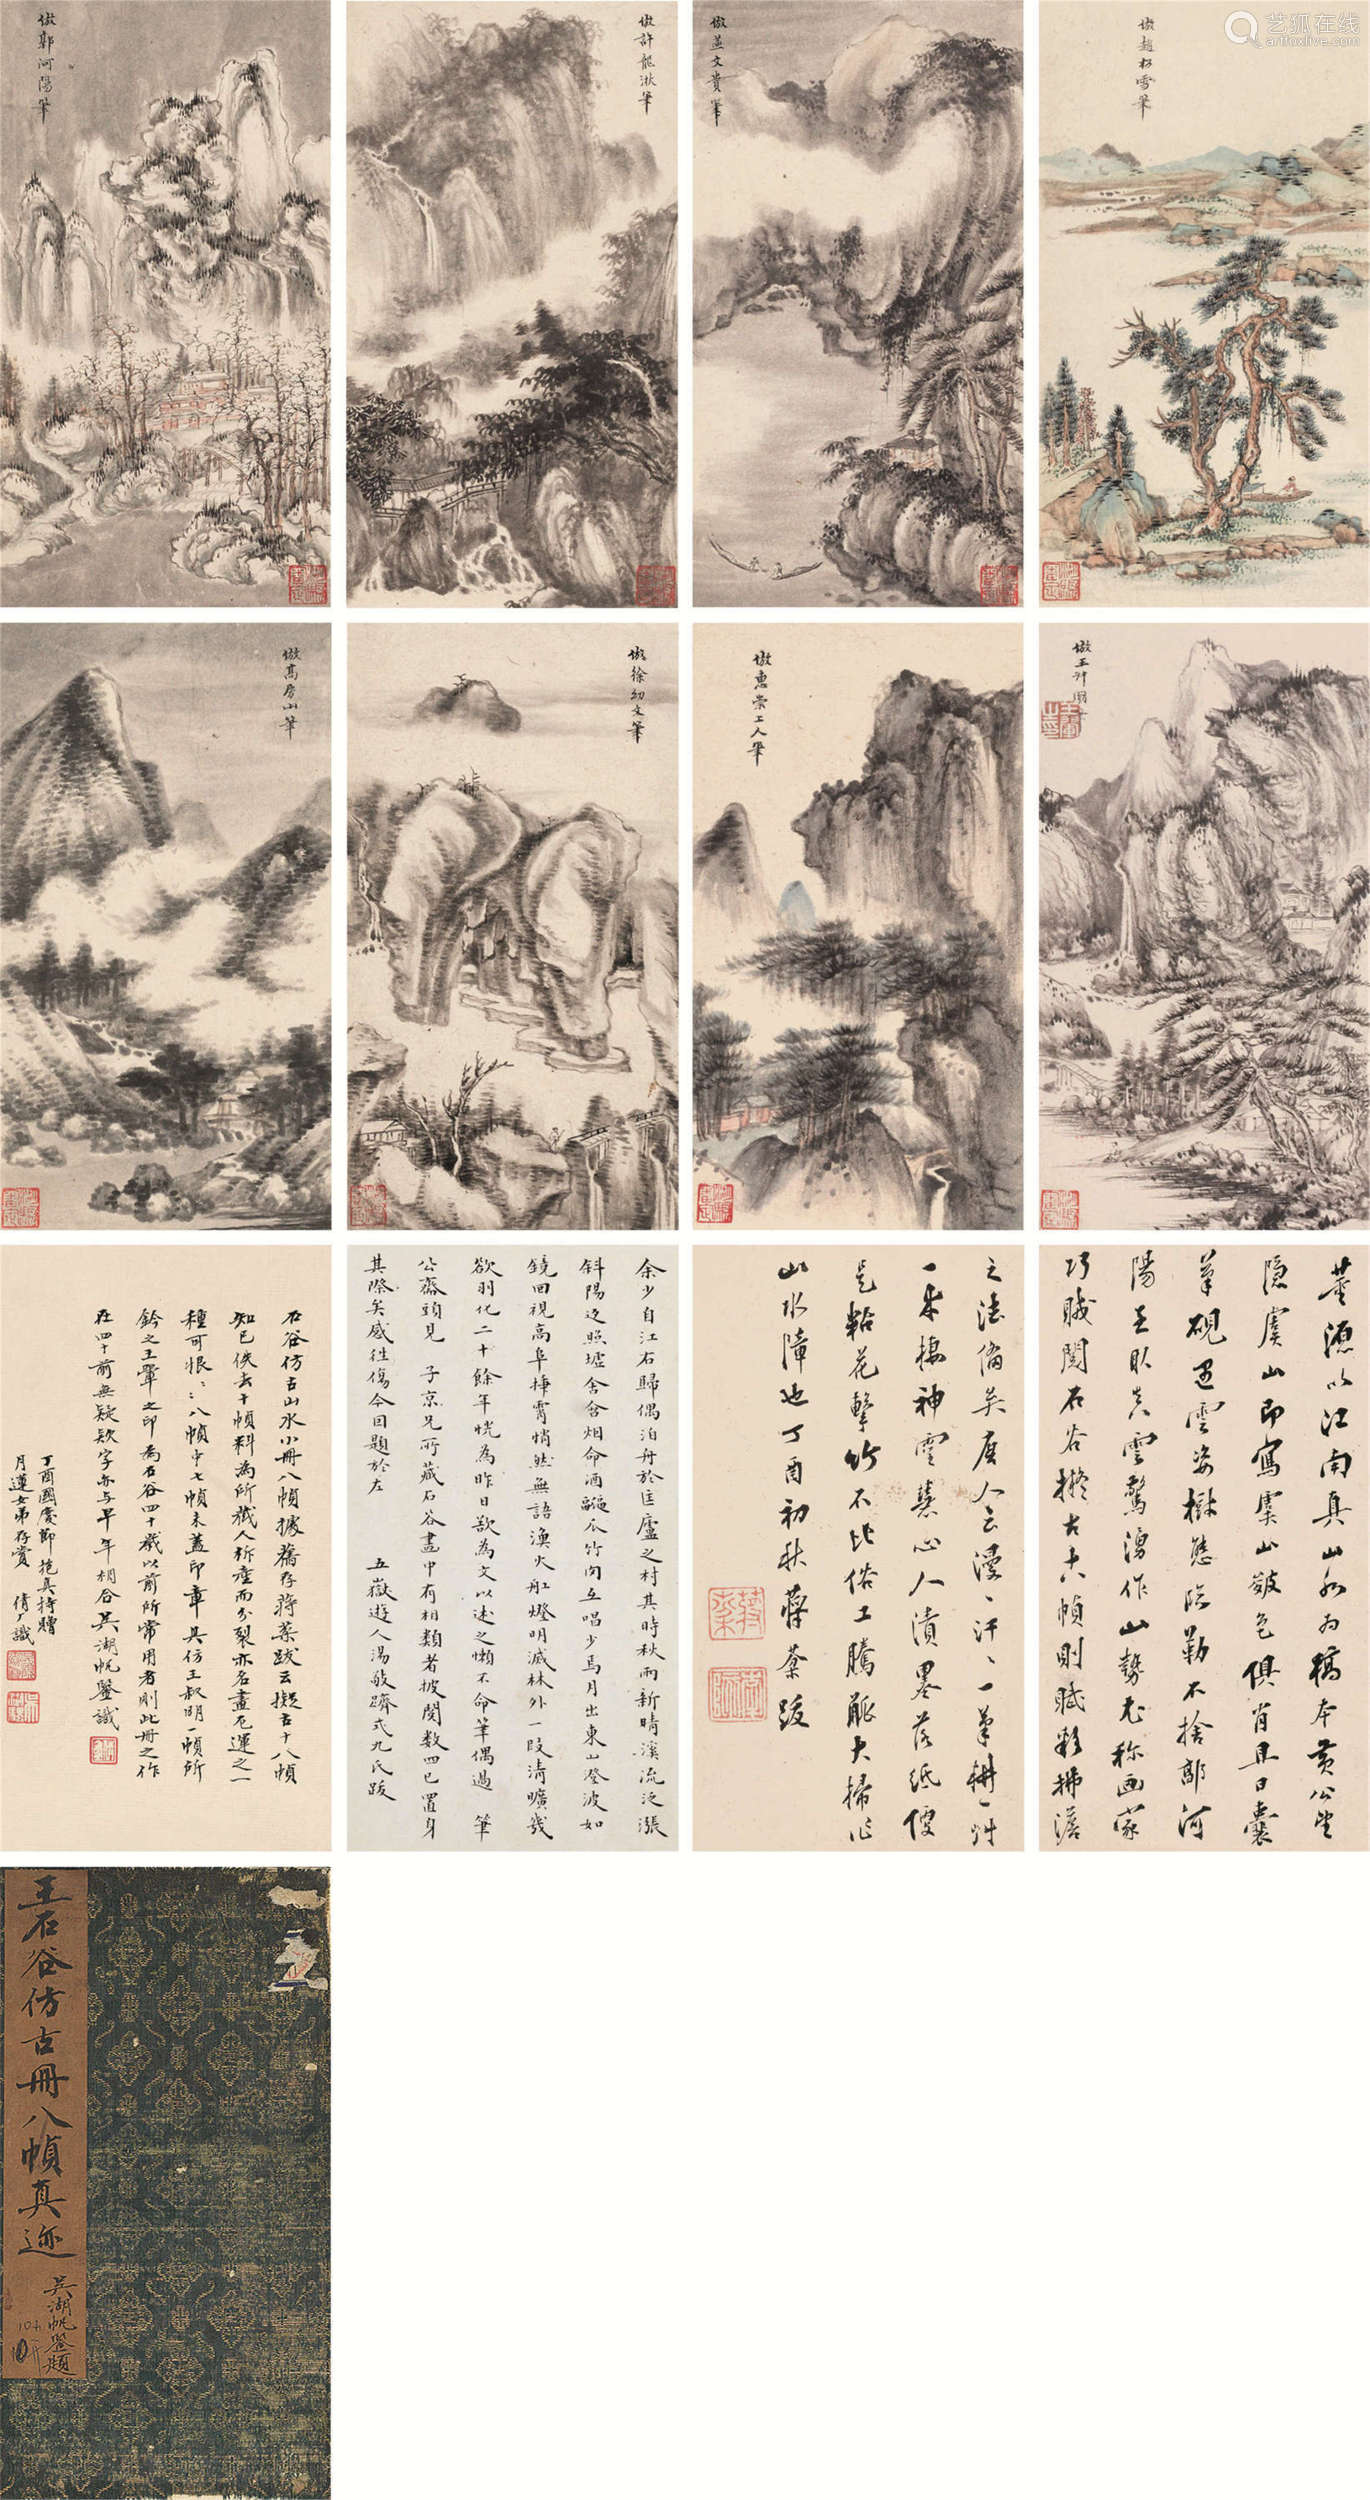 艺狐在线
artfoxlive.com
倣趙松雪筆
倣燕文貴筆
倣許龍湫筆
倣郭河陽筆
倣王叔明筆
倣惠崇上人筆
倣徐幼文筆
倣高房山筆
董源以江南真山水为稿本黃公望
隐虞山即寫虞山皴色俱肖且日囊
筆硯遇雲姿樹態臨勒不捨郭河
陽至取真雲驚湧作山勢尤称画家
巧賊閱石谷擬古十八幀則賦彩拂澹
之法備矣唐人云漫〻汗〻一筆耕一艸
一木棲神靈慧心人漬墨落紙便
是粘花擊竹不比俗工騰觚大掃作
山水障也丁酉初秋蔣棻跋
余少自江右歸偶泊舟於匡廬之村其時秋雨新晴溪流泛漲
斜陽返照墟舍含烟命酒瓜竹肉互唱少焉月出東山澄波如
鏡回視高阜摶霄悄然無語漁火舡燈明滅林外一段清曠幾
欲羽化二十餘年恍為昨日欲為文以述之懶不命筆偶過 筆
公齋頭見 子京兄所藏石谷畫中有相類者披閱数四已置身
其際矣感往傷今因題於左 五嶽遊人湯敏躋式九氏跋
石谷仿古山水小冊八幀據舊存蒋棻跋云擬古十八幀
知已佚去十幀料為所藏人析產而分裂亦名畫厄運之一
種可恨〻〻八幀中七幀未蓋印章其仿王叔明一幀所
鈐之王翬之印為石谷四十歲以前所常用者則此冊之作
在四十前無疑欵字亦与早年相合吳湖帆鑒識
丁酉國慶節抱真持贈
月蓮女弟存賞 倩厂識
王石谷仿古冊八幀真迹
吳湖帆鑒題